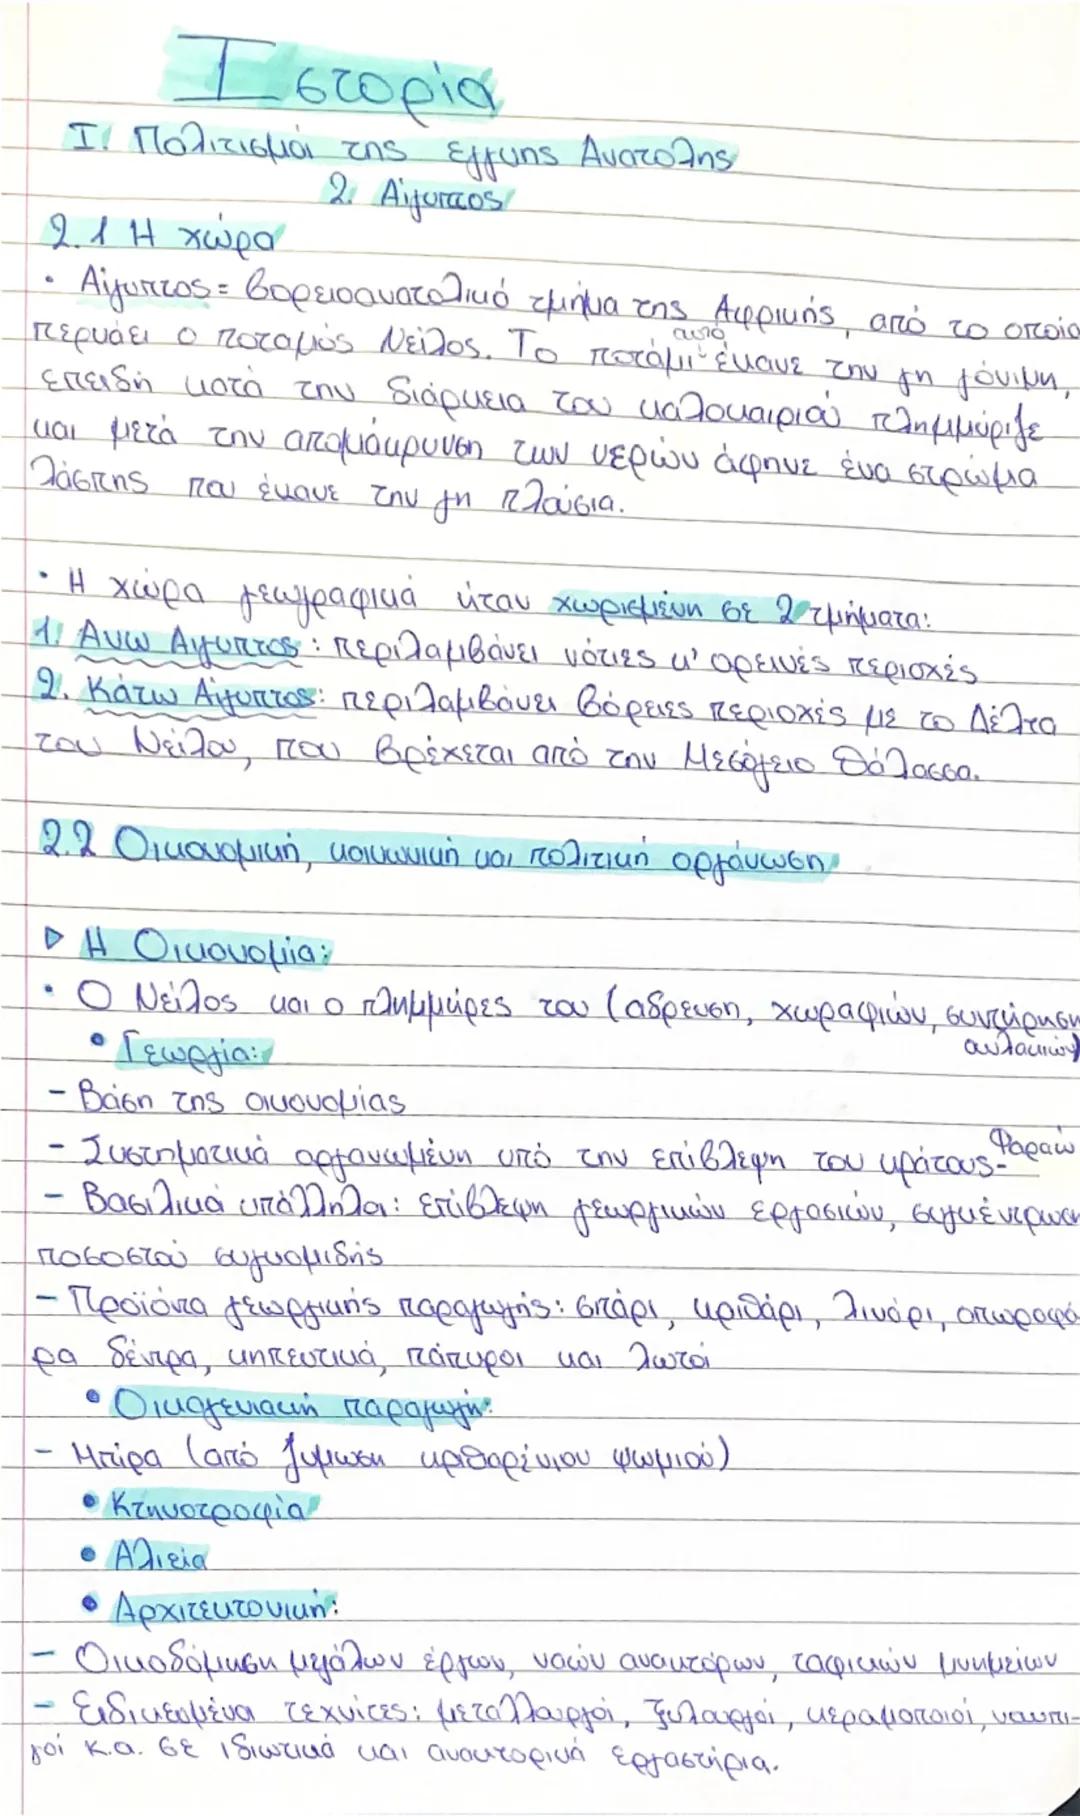 Ιστορία
Ι. Πολιτισμοί της εγγύης Ανατολης
2. Αίγυπτος
2.1 Η χώρα
• Αίγυπτος = βορειοανατολικό τμήμα της Αφρικής, από το οποίο
περνάει ο ποταμός Νείλος. Το ποτάμι αυτό έκανε την γη γόνιμη,
επειδή κατά την διάρκεια του καλοκαιριού πλημμύριζε
και μετά την απομάκρυνση των νερών άφηνε ένα στρώμα
λάσπης που έκανε την γη πλούσια.
• Η χώρα γεωγραφικά ήταν χωρισμένη σε 2 τμήματα:
1. Ανω Αιγυπτος: περιλαμβάνει νότιες κ' ορεινές περιοχές
2. Κάτω Αίγυπτος: περιλαμβάνει βόρειες περιοχές με το Δέλτα
του Νείλου, που βρέχεται από την Μεσόγειο Θάλασσα.
2.2 Οικονομική, κοινωνική και πολιτική οργάνωση
▷ Η Οικονομία:
• Ο Νείλος και ο πλημμύρες του (αδρευση, χωραφιών, συντήρηση
αυλακιών)
• Γεωργία:
- Βάση της οικονομίας
- Συστηματικά οργανωμένη υπό την επίβλεψη του κράτους- Φαραώ
- Βασιλικά υπάλληλοι: επίβλεψη γεωργικών εργασιών, συγκέντρωση
ποσοστού συγκομιδής
- Προϊόντα γεωργικής παραγωγής: σιτάρι, κριθάρι, λινάρι, οπωροφό
ρα δέντρα, κηπευτικά, πάπυροι και λωτοί
• Οικογενιακή παραγωγή:
- Μπίρα (από ζυμωση κριθαρένιου ψωμιού)
• Κτηνοτροφία
• Αλιεία
• Αρχιτεκτονική:
- Οικοδόμηση μεγάλων έργων, ναών ανακτόρων, ταφικών μνημείων
- Ειδικευμένοι τεχνίτες: μεταλλουργοί, ξυλουργοί, κεραμοποιοί, ναυπη-
γοί κ.α. σε ιδιωτικά και ανακτορικά εργαστήρια.